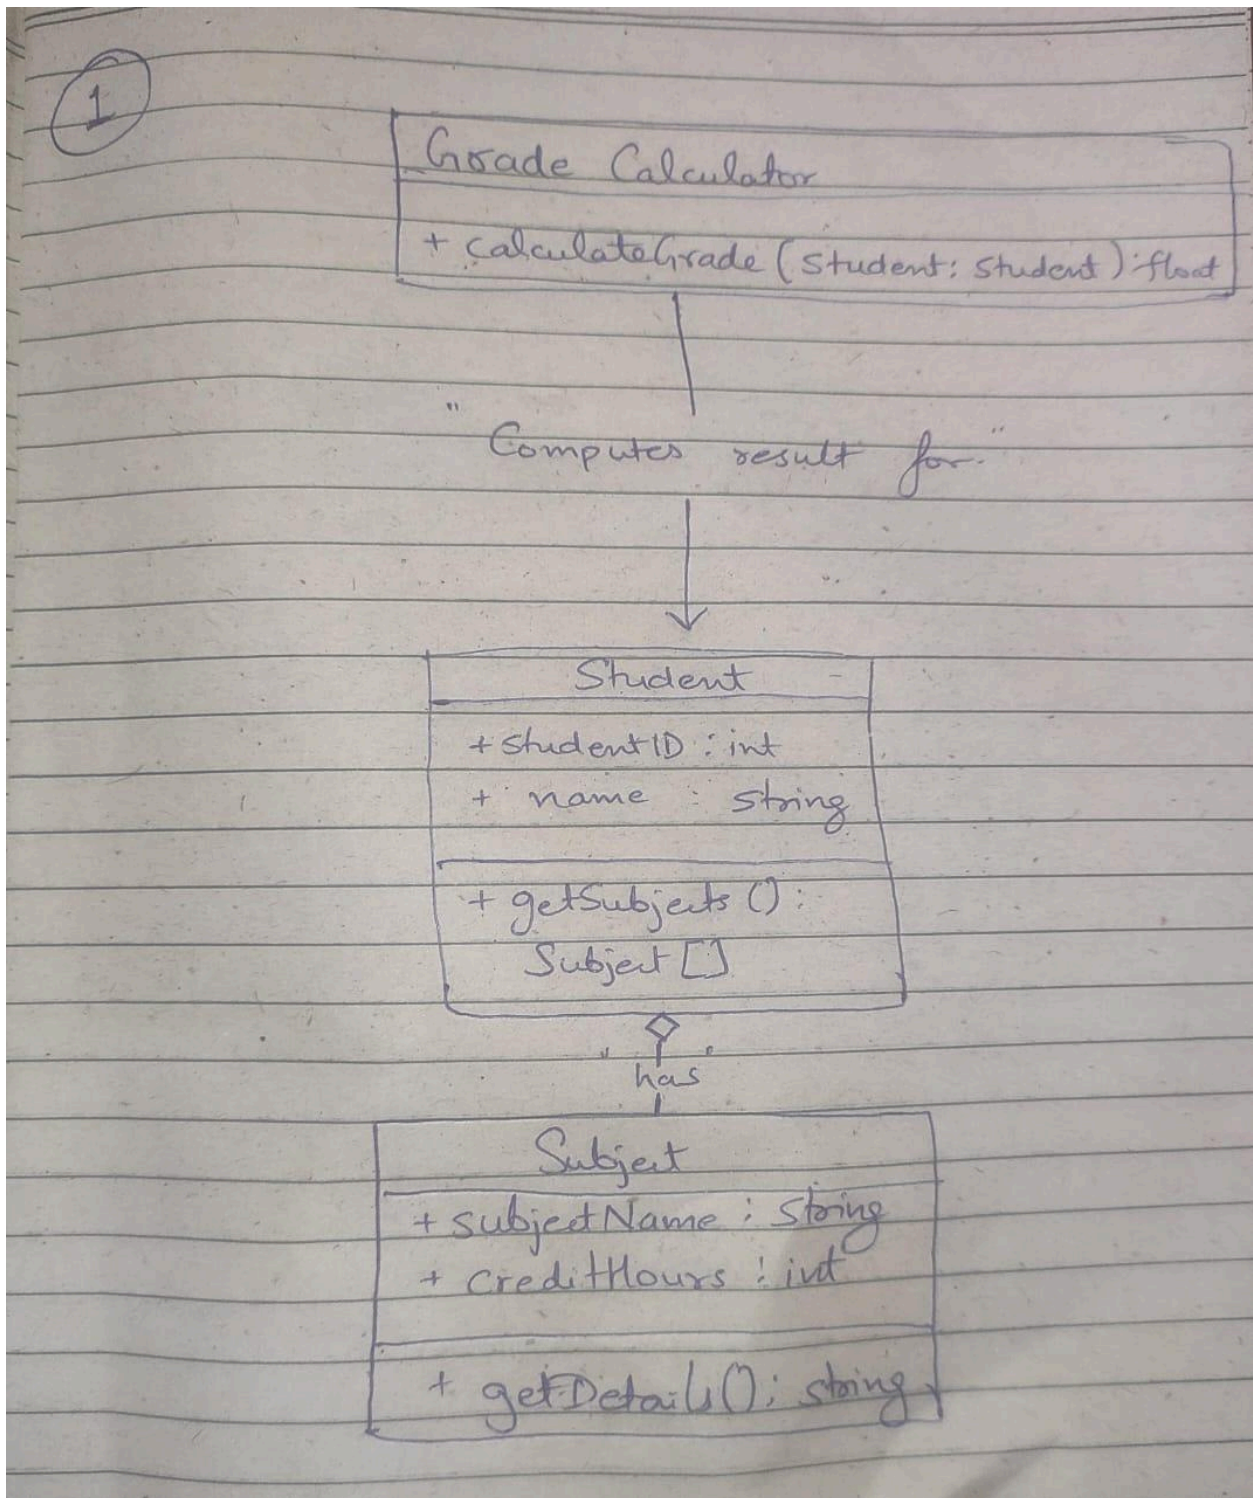 1
Grade Calculator
+ calculateGrade (Student: Student) : float
"Computes result for"
Student
+ studentID : int
+ name : string
+ getSubjects () :
Subject []
"has"
Subject
+ subjectName : string
+ creditHours : int
+ getDetails() : string